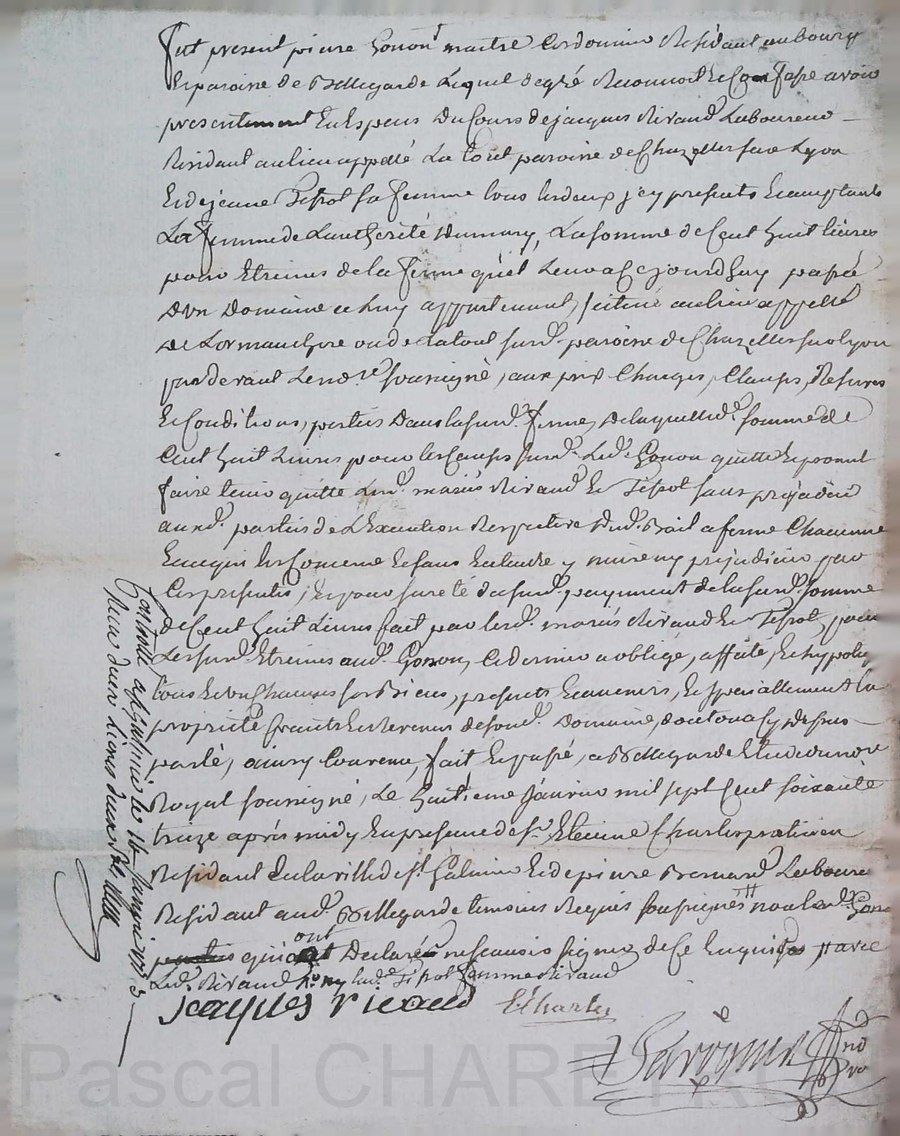 fut present pierre Gonon maitre Cordonnier Residant au bourg
Et paroisse de Bellegarde Lequel de gré Reconnoit Et Confesse avoir
presentement En Especes Du Cours de jacques Rivaud Laboureur
Residant au lieu appellé La tout paroisse de Chazelles sur Lyon
Et de jeane Tissot sa femme tous les deux jcy presents Et acceptants
La femme de Lautherité Du mary, La somme de Cent huit livres
pour Etreines de la ferme qu'il Leur a Cejourdhuy passé
D'un Domaine a luy appartenant, situé au lieu appellé
de ou de la tout surd. paroisse de Chazelles sur Lyon
par devant Le no.re soussigné, aux prix Charges, Clauses, Reserves
Et Conditions, portées Dans la susd. ferme, De laquelle d. somme de
Cent huit Livres pour les Causes susd. Led. Gonon quitte Et promet
faire tenir quitte Lesd. mariés Rivaud Et Tissot sans prejudice
auxd. parties de L'Execution Respective Dud. Bail a ferme Chacune
En ce qui les Concerne Et sans Entendre y nuire ny prejudicier par
Ces presentes, Et pour sureté du susd. payement de la susd. somme
de Cent huit Livres fait par lesd. mariés Rivaud Et Tissot, pour
Les susd. Etreines aud. Gonon, Ce dernier a obligé, affecté, Et hypoteq
tous Et un Chacuns ses Biens, presents Et avenirs, Et specialement la
proprieté fruits Et Revenus desond. Domaine, dont on a cy dessus
parlé, ainsy Convenu, fait Et passé, a Bellegarde Etude du no.re
Royal soussigné, Le huitieme Janvier mil sept Cent soixante
treize aprés midy En presence de s.r Etienne Charles praticien
Residant En la ville de s.t Galmier Et de pierre Laboureur
Residant aud. Bellegarde temoins Requis soussignés non led. Gonon
qui ont Declaré ne scavoir signer de Ce Enquis par
Led. Rivaud ny lad. Tissot femme Rivaud
jacques rivaud
Charles
Controllé a s.t Galmier le 14 Janvier 1773
Reçu